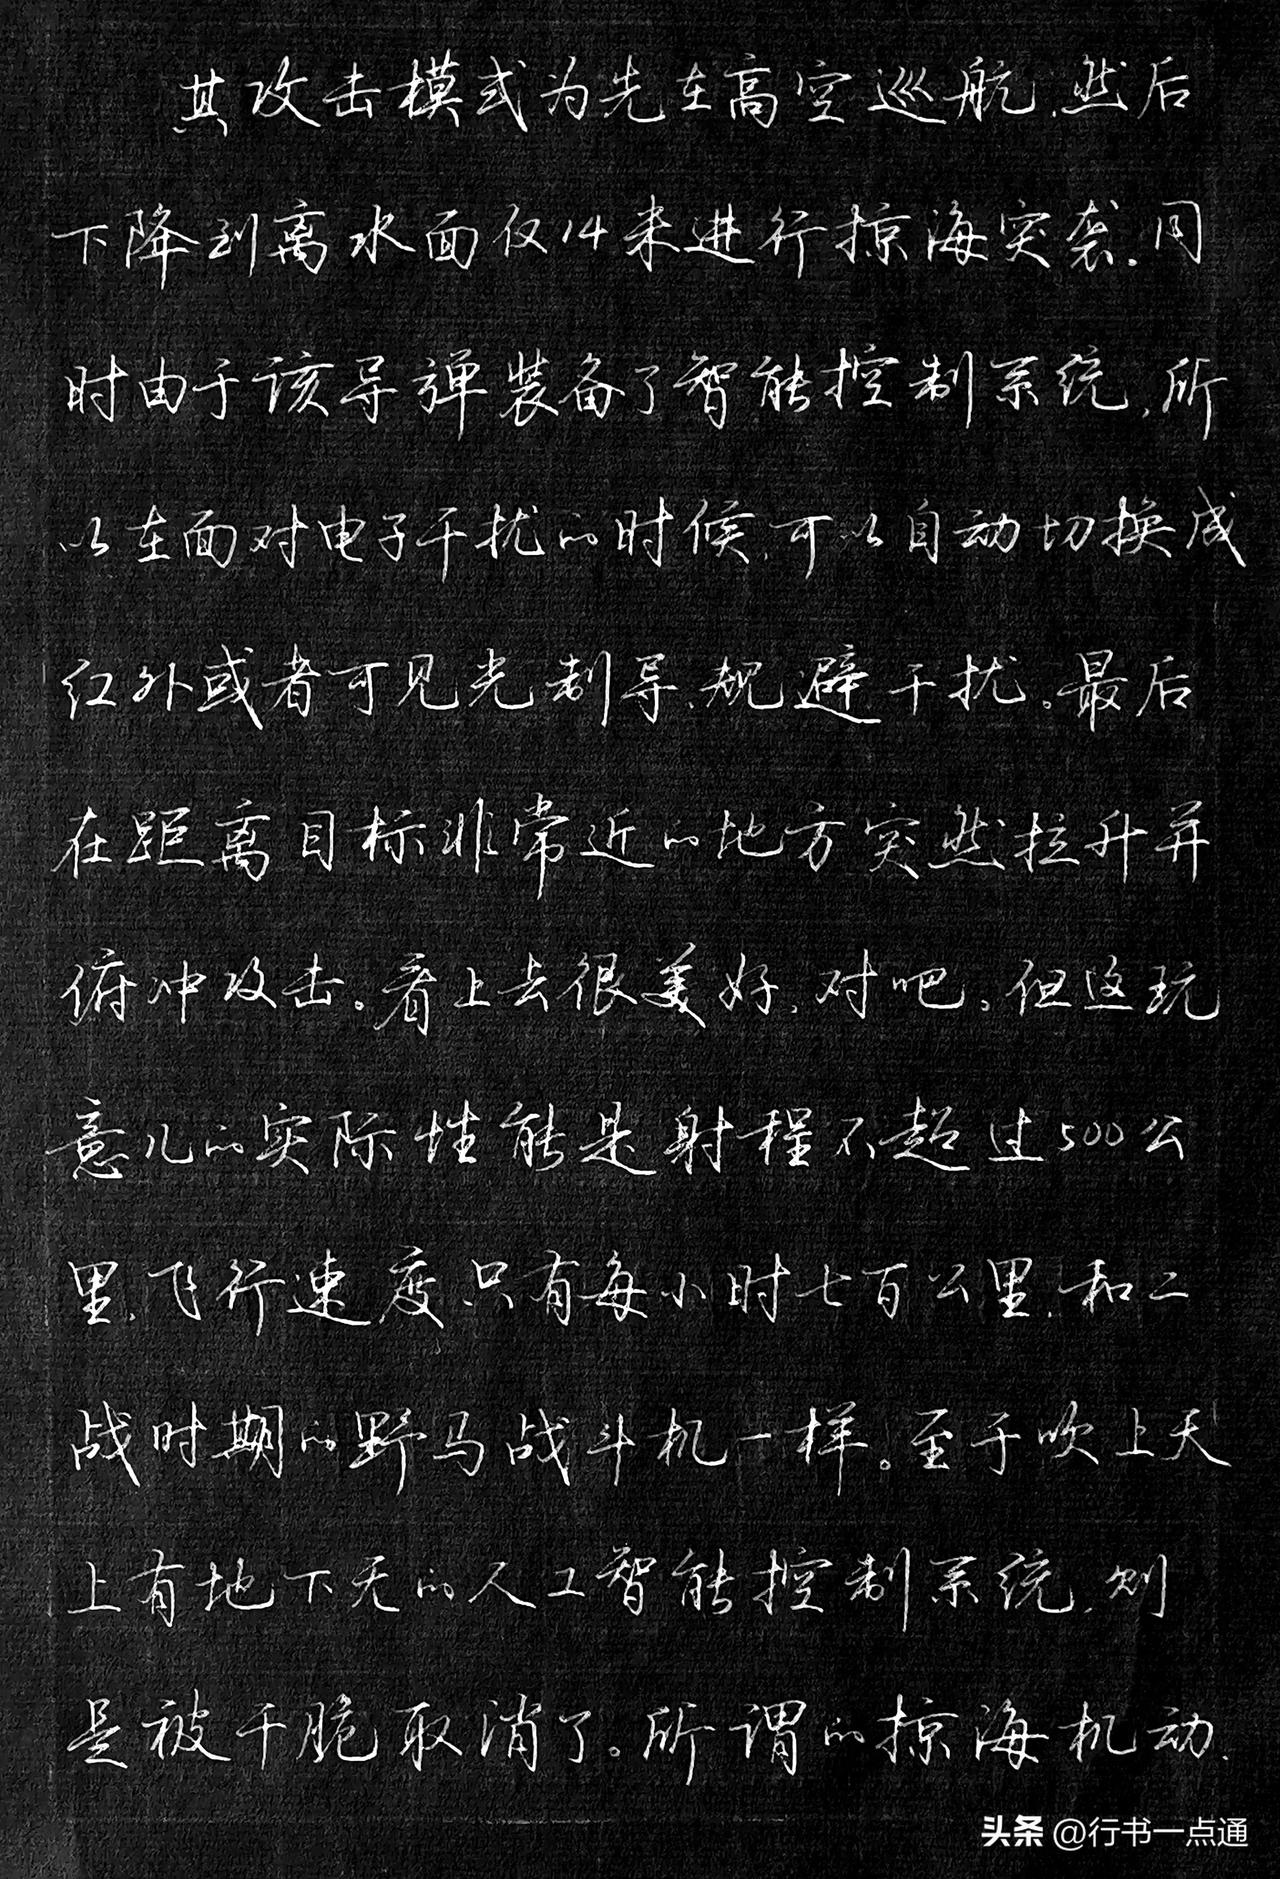 其攻击模式为先在高空巡航,然后
下降到离水面仅14来进行掠海突袭.同
时由于该导弹装备了智能控制系统,所
以在面对电子干扰的时候,可以自动切换成
红外或者可见光制导、规避干扰。最后
在距离目标非常近的地方突然拉升并
俯冲攻击。看上去很美好,对吧。但这玩
意儿的实际性能是射程不超过500公
里,飞行速度只有每小时七百公里,和二
战时期的野马战斗机一样。至于吹上天
上有地下无的人工智能控制系统,则
是被干脆取消了。所谓的掠海机动,
头条 @行书一点通